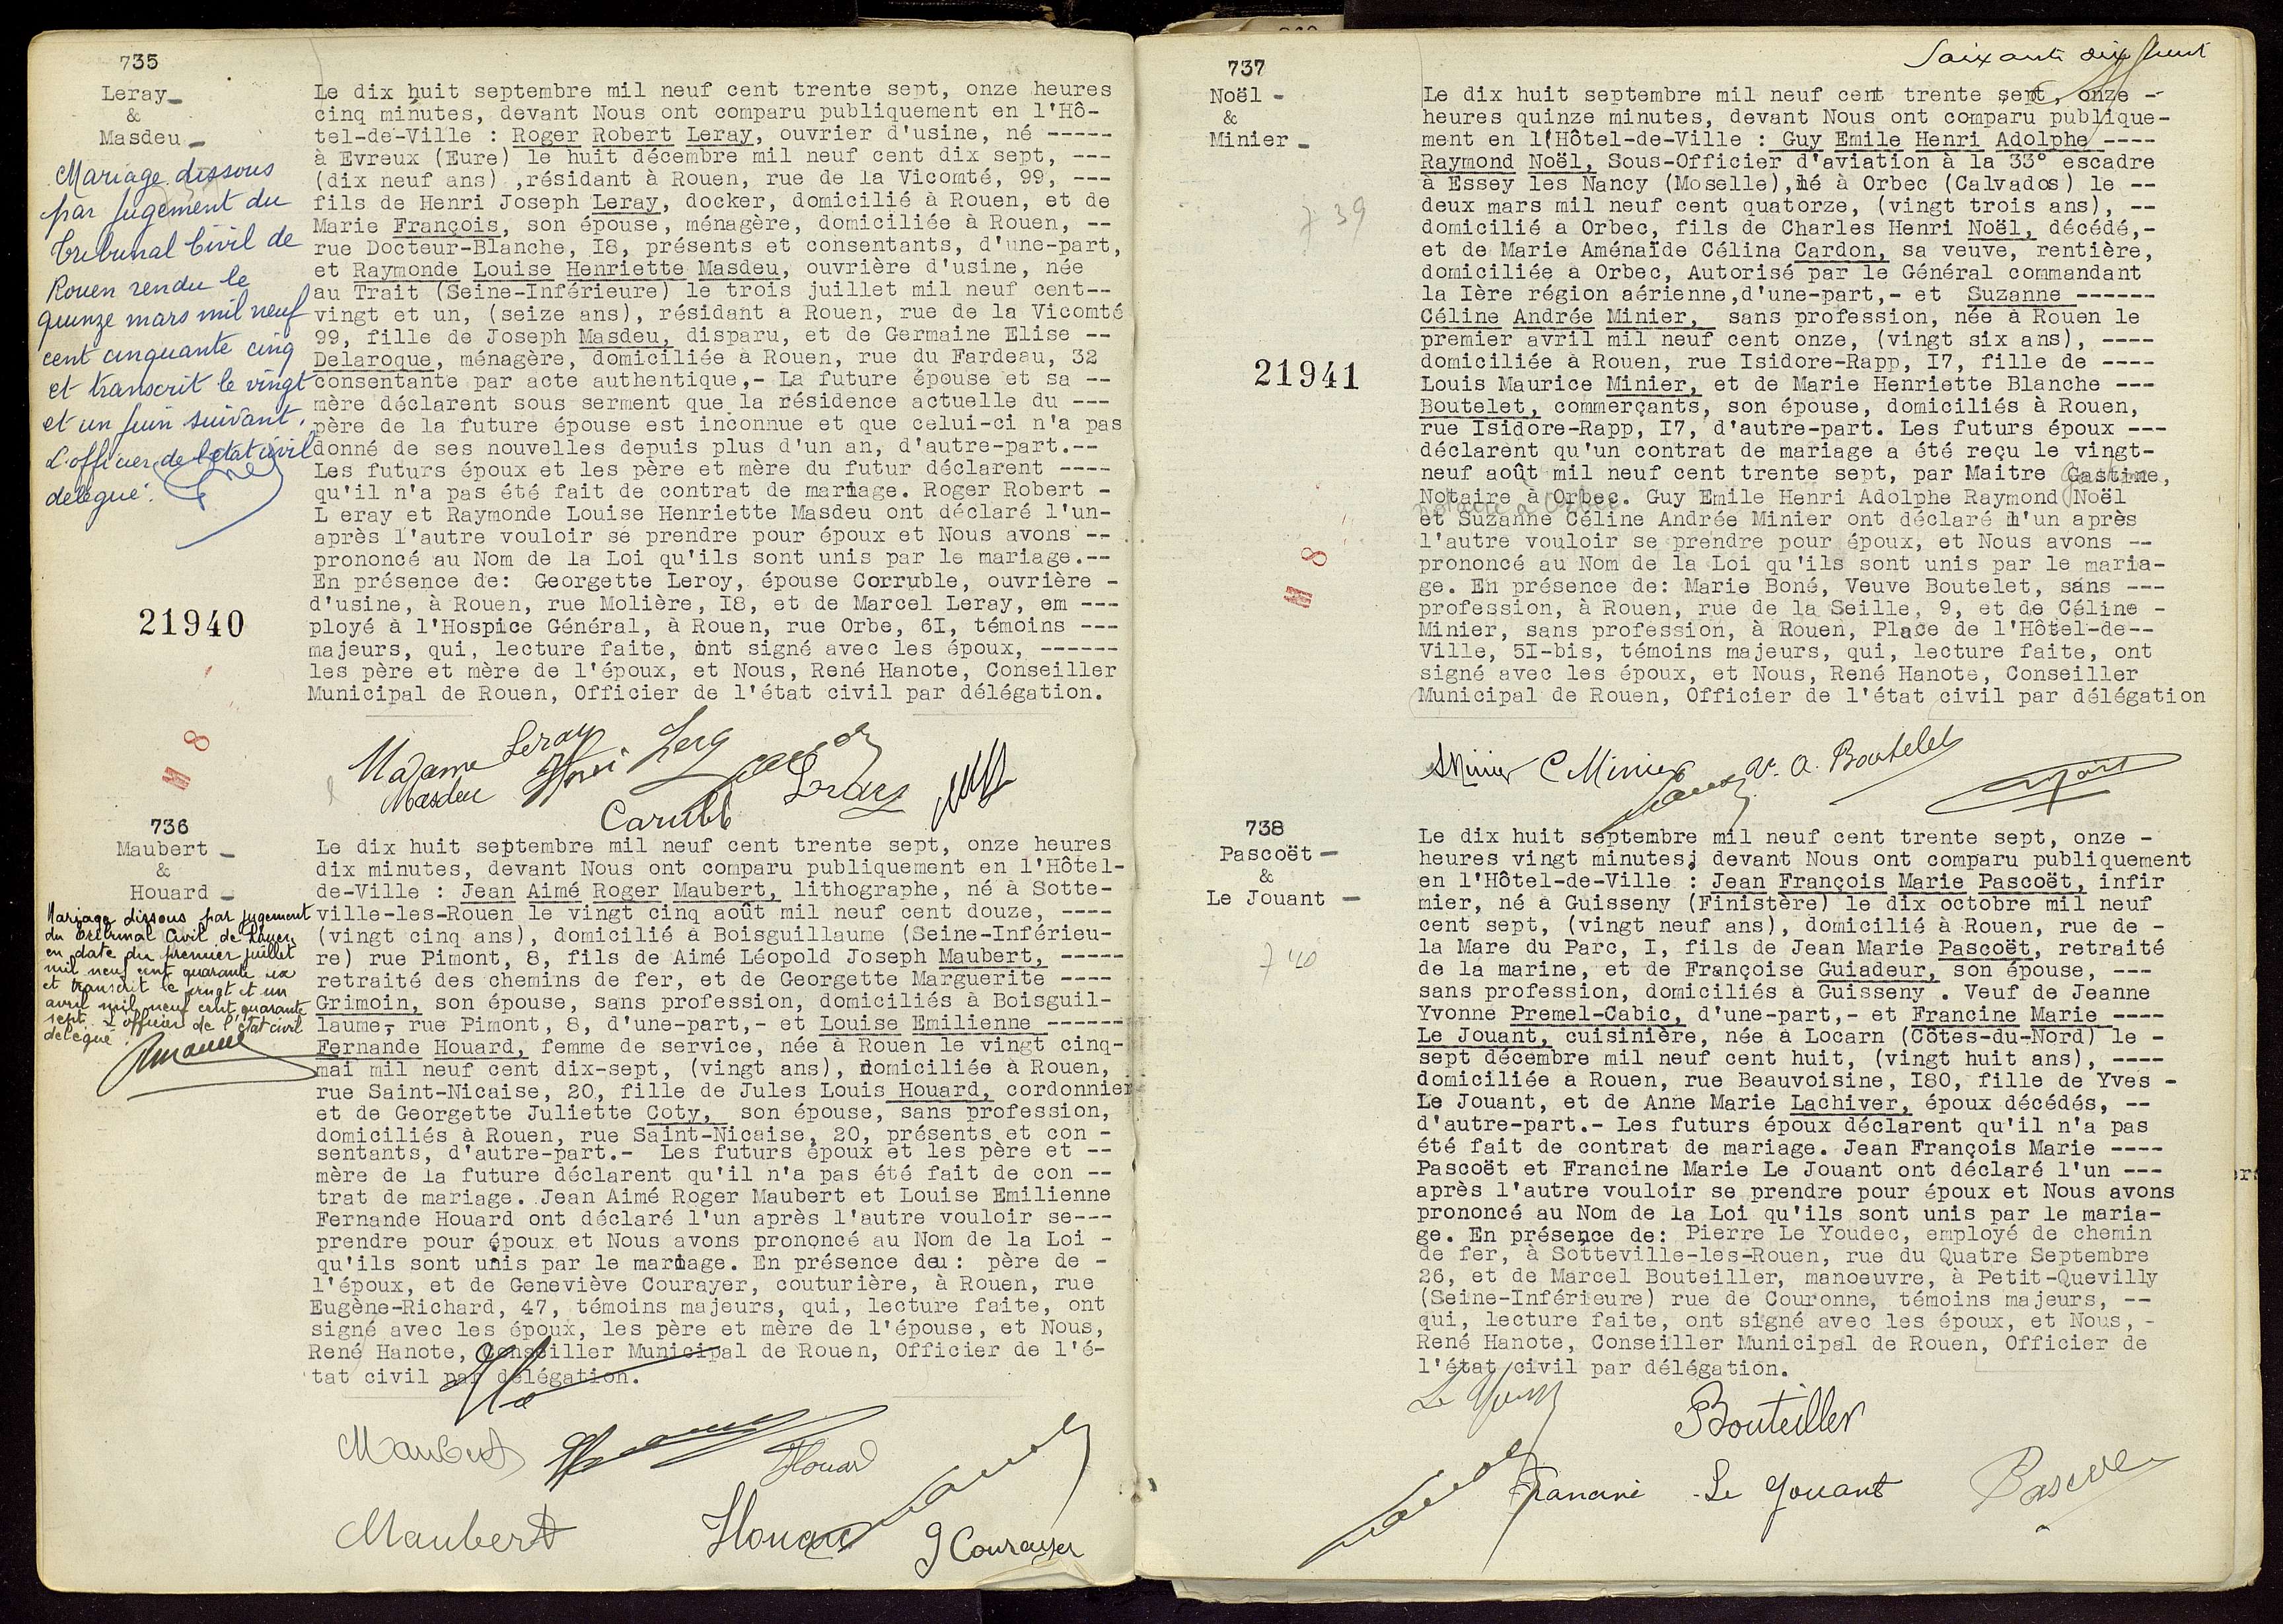 735
Leray_
&
Masdeu_
Mariage dissous
par jugement du
Tribunal Civil de
Rouen rendu le
quinze mars mil neuf
cent cinquante cinq
et transcrit le vingt
et un juin suivant.
L'officier de l'état civil
délégué.
21940
M 8
Le dix huit septembre mil neuf cent trente sept, onze heures
cinq minutes, devant Nous ont comparu publiquement en l'Hô-
tel-de-Ville : Roger Robert Leray, ouvrier d'usine, né -----
à Evreux (Eure) le huit décembre mil neuf cent dix sept, ---
(dix neuf ans) ,résidant à Rouen, rue de la Vicomté, 99, ---
fils de Henri Joseph Leray, docker, domicilié à Rouen, et de
Marie François, son épouse, ménagère, domiciliée à Rouen, --
rue Docteur-Blanche, I8, présents et consentants, d'une-part,
et Raymonde Louise Henriette Masdeu, ouvrière d'usine, née
au Trait (Seine-Inférieure) le trois juillet mil neuf cent--
vingt et un, (seize ans), résidant a Rouen, rue de la Vicomté
99, fille de Joseph Masdeu, disparu, et de Germaine Elise --
Delaroque, ménagère, domiciliée à Rouen, rue du Fardeau, 32
consentante par acte authentique,- La future épouse et sa --
mère déclarent sous serment que la résidence actuelle du ---
père de la future épouse est inconnue et que celui-ci n'a pas
donné de ses nouvelles depuis plus d'un an, d'autre-part.--
Les futurs époux et les père et mère du futur déclarent ----
qu'il n'a pas été fait de contrat de mariage. Roger Robert -
L eray et Raymonde Louise Henriette Masdeu ont déclaré l'un-
après l'autre vouloir se prendre pour époux et Nous avons --
prononcé au Nom de la Loi qu'ils sont unis par le mariage.--
En présence de: Georgette Leroy, épouse Corruble, ouvrière -
d'usine, à Rouen, rue Molière, I8, et de Marcel Leray, em ---
ployé à l'Hospice Général, à Rouen, rue Orbe, 6I, témoins ---
majeurs, qui, lecture faite, ont signé avec les époux, ------
les père et mère de l'époux, et Nous, René Hanote, Conseiller
Municipal de Rouen, Officier de l'état civil par délégation.
Madame Leray
Masdeu
Leray
736
Maubert _
&
Houard _
Mariage dissous par jugement
du Tribunal Civil de Rouen
en date du premier juillet
mil neuf cent quarante six
et transcrit le vingt et un
avril mil neuf cent quarante
sept. L'officier de l'état civil
délégué.
Le dix huit septembre mil neuf cent trente sept, onze heures
dix minutes, devant Nous ont comparu publiquement en l'Hôtel-
de-Ville : Jean Aimé Roger Maubert, lithographe, né à Sotte-
ville-les-Rouen le vingt cinq août mil neuf cent douze, ----
(vingt cinq ans), domicilié à Boisguillaume (Seine-Inférieu-
re) rue Pimont, 8, fils de Aimé Léopold Joseph Maubert, -----
retraité des chemins de fer, et de Georgette Marguerite ----
Grimoin, son épouse, sans profession, domiciliés à Boisguil-
laume, rue Pimont, 8, d'une-part,- et Louise Emilienne ------
Fernande Houard, femme de service, née à Rouen le vingt cinq-
mai mil neuf cent dix-sept, (vingt ans), domiciliée à Rouen,
rue Saint-Nicaise, 20, fille de Jules Louis Houard, cordonnier
et de Georgette Juliette Coty, son épouse, sans profession,
domiciliés à Rouen, rue Saint-Nicaise, 20, présents et con -
sentants, d'autre-part.- Les futurs époux et les père et --
mère de la future déclarent qu'il n'a pas été fait de con --
trat de mariage. Jean Aimé Roger Maubert et Louise Emilienne
Fernande Houard ont déclaré l'un après l'autre vouloir se---
prendre pour époux et Nous avons prononcé au Nom de la Loi -
qu'ils sont unis par le mariage. En présence du: père de -
l'époux, et de Geneviève Courayer, couturière, à Rouen, rue
Eugène-Richard, 47, témoins majeurs, qui, lecture faite, ont
signé avec les époux, les père et mère de l'épouse, et Nous,
René Hanote, Conseiller Municipal de Rouen, Officier de l'é-
tat civil par délégation.
Maubert
Houard
Maubert
Houard
G Courayer
Soixante dix huit
737
Noël -
&
Minier _
739
21941
M 8
Le dix huit septembre mil neuf cent trente sept, onze -
heures quinze minutes, devant Nous ont comparu publique-
ment en l'Hôtel-de-Ville : Guy Emile Henri Adolphe ----
Raymond Noël, Sous-Officier d'aviation à la 33° escadre
à Essey les Nancy (Moselle),né à Orbec (Calvados) le --
deux mars mil neuf cent quatorze, (vingt trois ans), --
domicilié a Orbec, fils de Charles Henri Noël, décédé,-
et de Marie Aménaïde Célina Cardon, sa veuve, rentière,
domiciliée a Orbec, Autorisé par le Général commandant
la Ière région aérienne,d'une-part,- et Suzanne ------
Céline Andrée Minier, sans profession, née à Rouen le
premier avril mil neuf cent onze, (vingt six ans), ----
domiciliée à Rouen, rue Isidore-Rapp, I7, fille de ----
Louis Maurice Minier, et de Marie Henriette Blanche ---
Boutelet, commerçants, son épouse, domiciliés à Rouen,
rue Isidore-Rapp, I7, d'autre-part. Les futurs époux ---
déclarent qu'un contrat de mariage a été reçu le vingt-
neuf août mil neuf cent trente sept, par Maitre Gastine,
Notaire à Orbec. Guy Emile Henri Adolphe Raymond Noël
et Suzanne Céline Andrée Minier ont déclaré l'un après
l'autre vouloir se prendre pour époux, et Nous avons --
prononcé au Nom de la Loi qu'ils sont unis par le maria-
ge. En présence de: Marie Boné, Veuve Boutelet, sans ---
profession, à Rouen, rue de la Seille, 9, et de Céline -
Minier, sans profession, à Rouen, Place de l'Hôtel-de--
Ville, 5I-bis, témoins majeurs, qui, lecture faite, ont
signé avec les époux, et Nous, René Hanote, Conseiller
Municipal de Rouen, Officier de l'état civil par délégation
SMinier C Minier V. A. Boutelet
738
Pascoët _
&
Le Jouant _
740
Le dix huit septembre mil neuf cent trente sept, onze -
heures vingt minutes; devant Nous ont comparu publiquement
en l'Hôtel-de-Ville : Jean François Marie Pascoët, infir
mier, né à Guisseny (Finistère) le dix octobre mil neuf
cent sept, (vingt neuf ans), domicilié à Rouen, rue de -
la Mare du Parc, I, fils de Jean Marie Pascoët, retraité
de la marine, et de Françoise Guiadeur, son épouse, ---
sans profession, domiciliés à Guisseny . Veuf de Jeanne
Yvonne Premel-Cabic, d'une-part,- et Francine Marie ----
Le Jouant, cuisinière, née à Locarn (Côtes-du-Nord) le -
sept décembre mil neuf cent huit, (vingt huit ans), ----
domiciliée a Rouen, rue Beauvoisine, I80, fille de Yves -
Le Jouant, et de Anne Marie Lachiver, époux décédés, --
d'autre-part.- Les futurs époux déclarent qu'il n'a pas
été fait de contrat de mariage. Jean François Marie ----
Pascoët et Francine Marie Le Jouant ont déclaré l'un ---
après l'autre vouloir se prendre pour époux et Nous avons
prononcé au Nom de la Loi qu'ils sont unis par le maria-
ge. En présence de: Pierre Le Youdec, employé de chemin
de fer, à Sotteville-les-Rouen, rue du Quatre Septembre
26, et de Marcel Bouteiller, manoeuvre, à Petit-Quevilly
(Seine-Inférieure) rue de Couronne, témoins majeurs, --
qui, lecture faite, ont signé avec les époux, et Nous, -
René Hanote, Conseiller Municipal de Rouen, Officier de
l'état civil par délégation.
Bouteiller
Francine Le Jouant